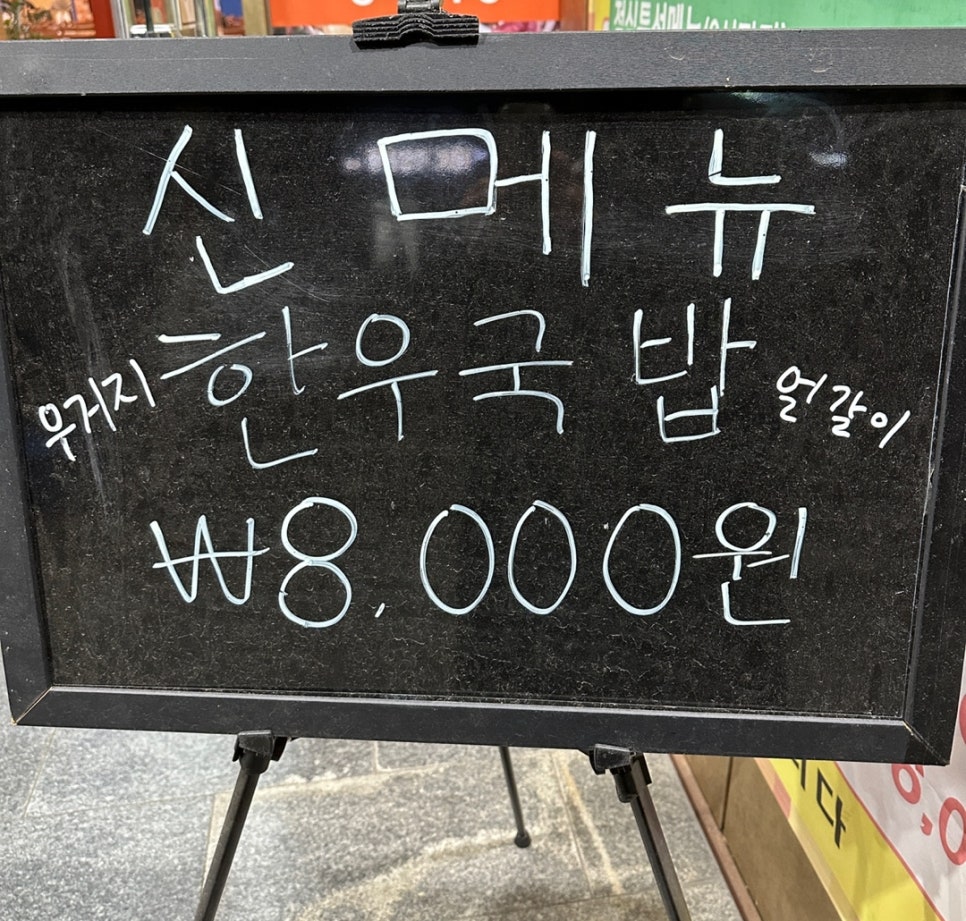 신 메뉴
우거지 한우국밥 얼갈이
₩8,000원